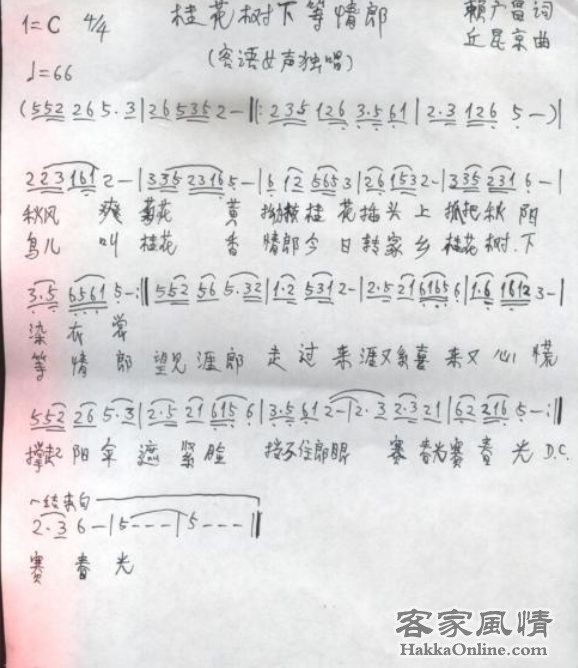 1=C 4/4 桂花树下等情郎 赖广昌词
♩=66 (客语女声独唱) 丘昆京曲
(552 26 5·3|26 535 2-‖(:235 126 3·5 61|2·3 126 5-)|
223 161 2-|335 2316 5-|6 12 565 3|26 1532 2-|335 231 6-|
秋风 爽 菊花 黄 拗枝桂花插头上 抓把秋阳
鸟儿 叫 桂花 香 情郎今日转家乡 桂花树下
3·5 6561 5-:‖552 56 5·32|1·2 531 2-|2·5 21 6165 6|1·6 1612 3-|
染衣裳
等情郎 望见涯郎走过来 涯又喜来又心慌
552 26 5·3|2·5 21 615 6|3·5 61 2-|2·3 2·3 21|62 216 5-:‖
撑起阳伞遮紧脸 挡不住郎眼 赛春光赛春光 D.C.
结束句
2·3 6-|5---|5---‖
赛春光
客家風情
HakkaOnline.com